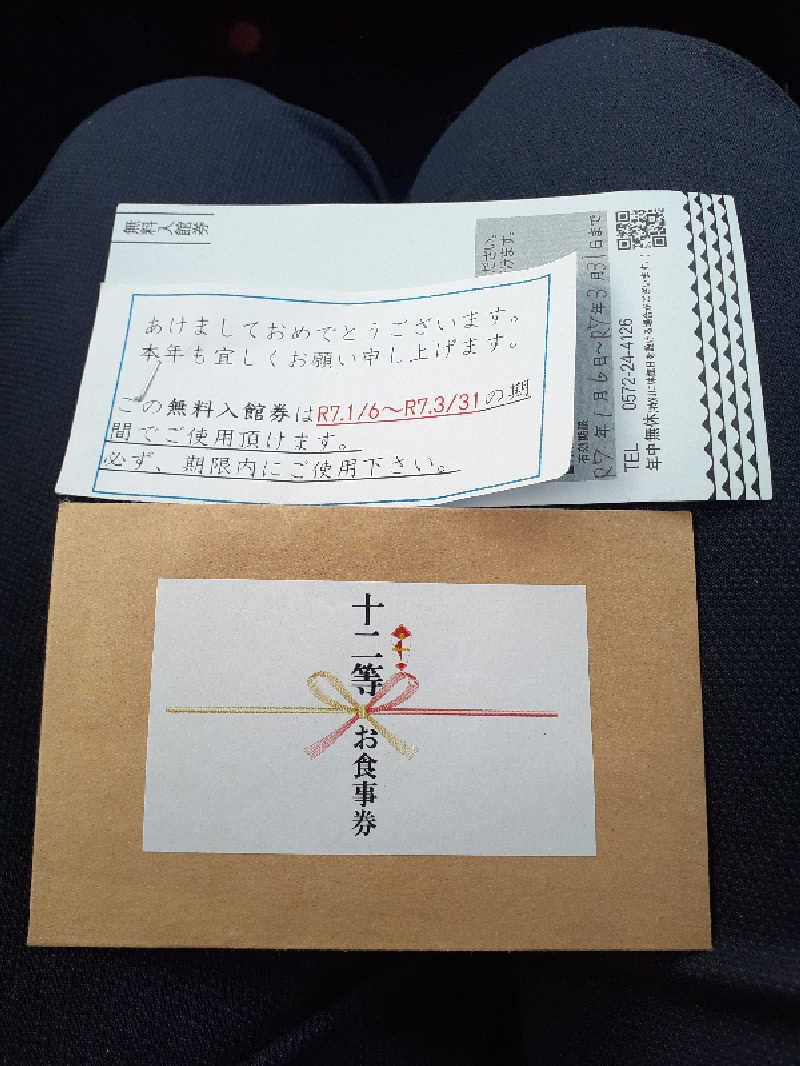 無料入館券
ださい。
けます。
有効期限
R7年1月6日〜R7年3月31日まで
TEL 0572-24-4126
あけましておめでとうございます。
本年も宜しくお願い申し上げます。
この無料入館券はR7.1/6〜R7.3/31の期
間でご使用頂けます。
必ず、期限内にご使用下さい。
十二等
お食事券